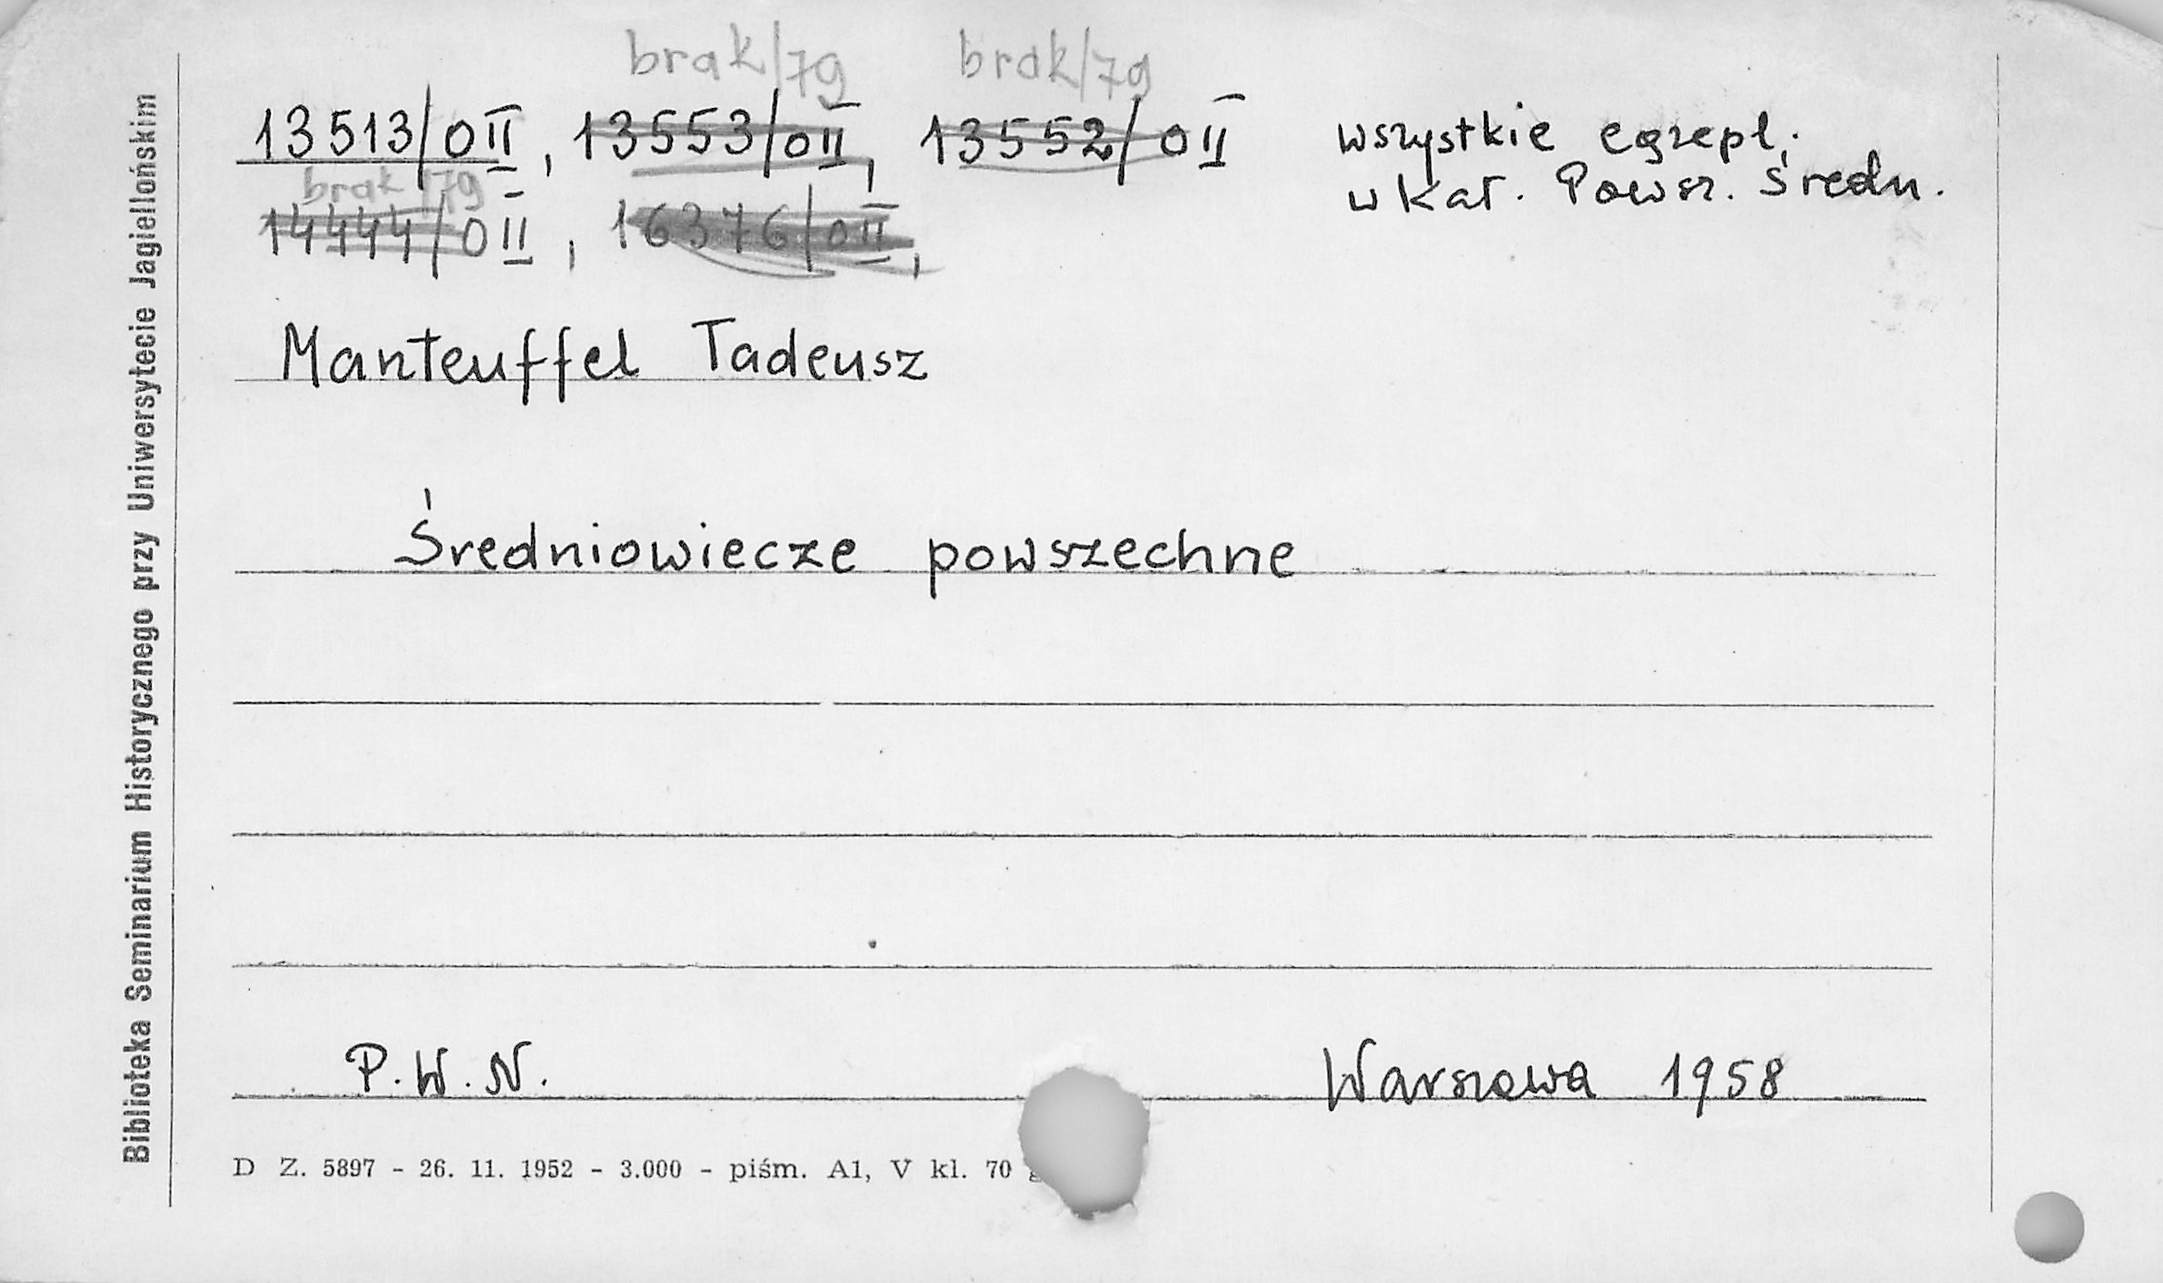 brak/79 brak/79
13513/0II, 13553/0II, 13552/0II
wszystkie egzepl.
w kat. Powsz. Średn.
brak/79
14444/0II, 16376/0II,
Manteuffel Tadeusz
Średniowiecze powszechne
P.W.N. Warszawa 1958
D Z. 5897 - 26. 11. 1952 - 3.000 - piśm. A1, V kl. 70 g
Biblioteka Seminarium Historycznego przy Uniwersytecie Jagiellońskim